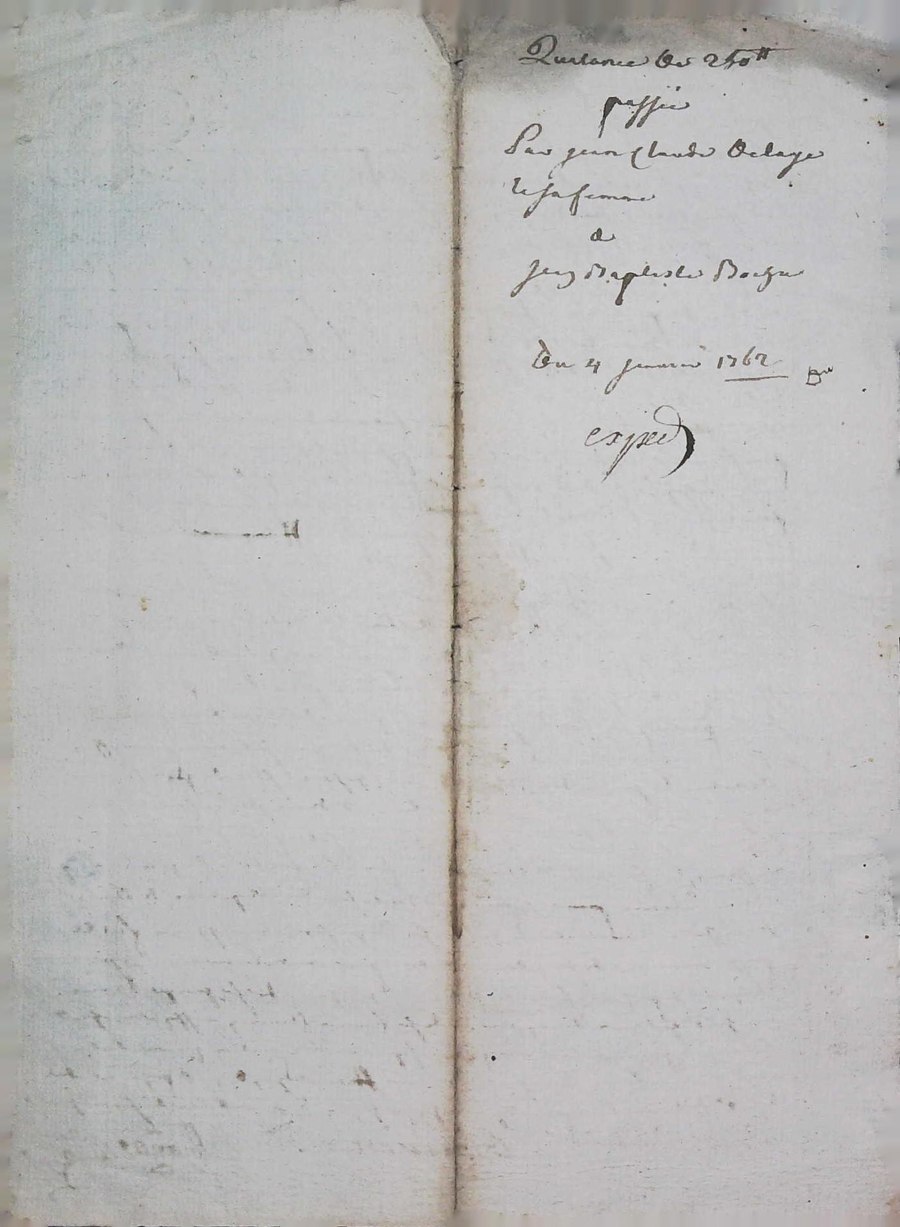 Quittance de 240ᵗᵗ
passée
Par jean Claude Delaye
et sa femme
a
jean Baptiste
Du 4 janvier 1762
exped